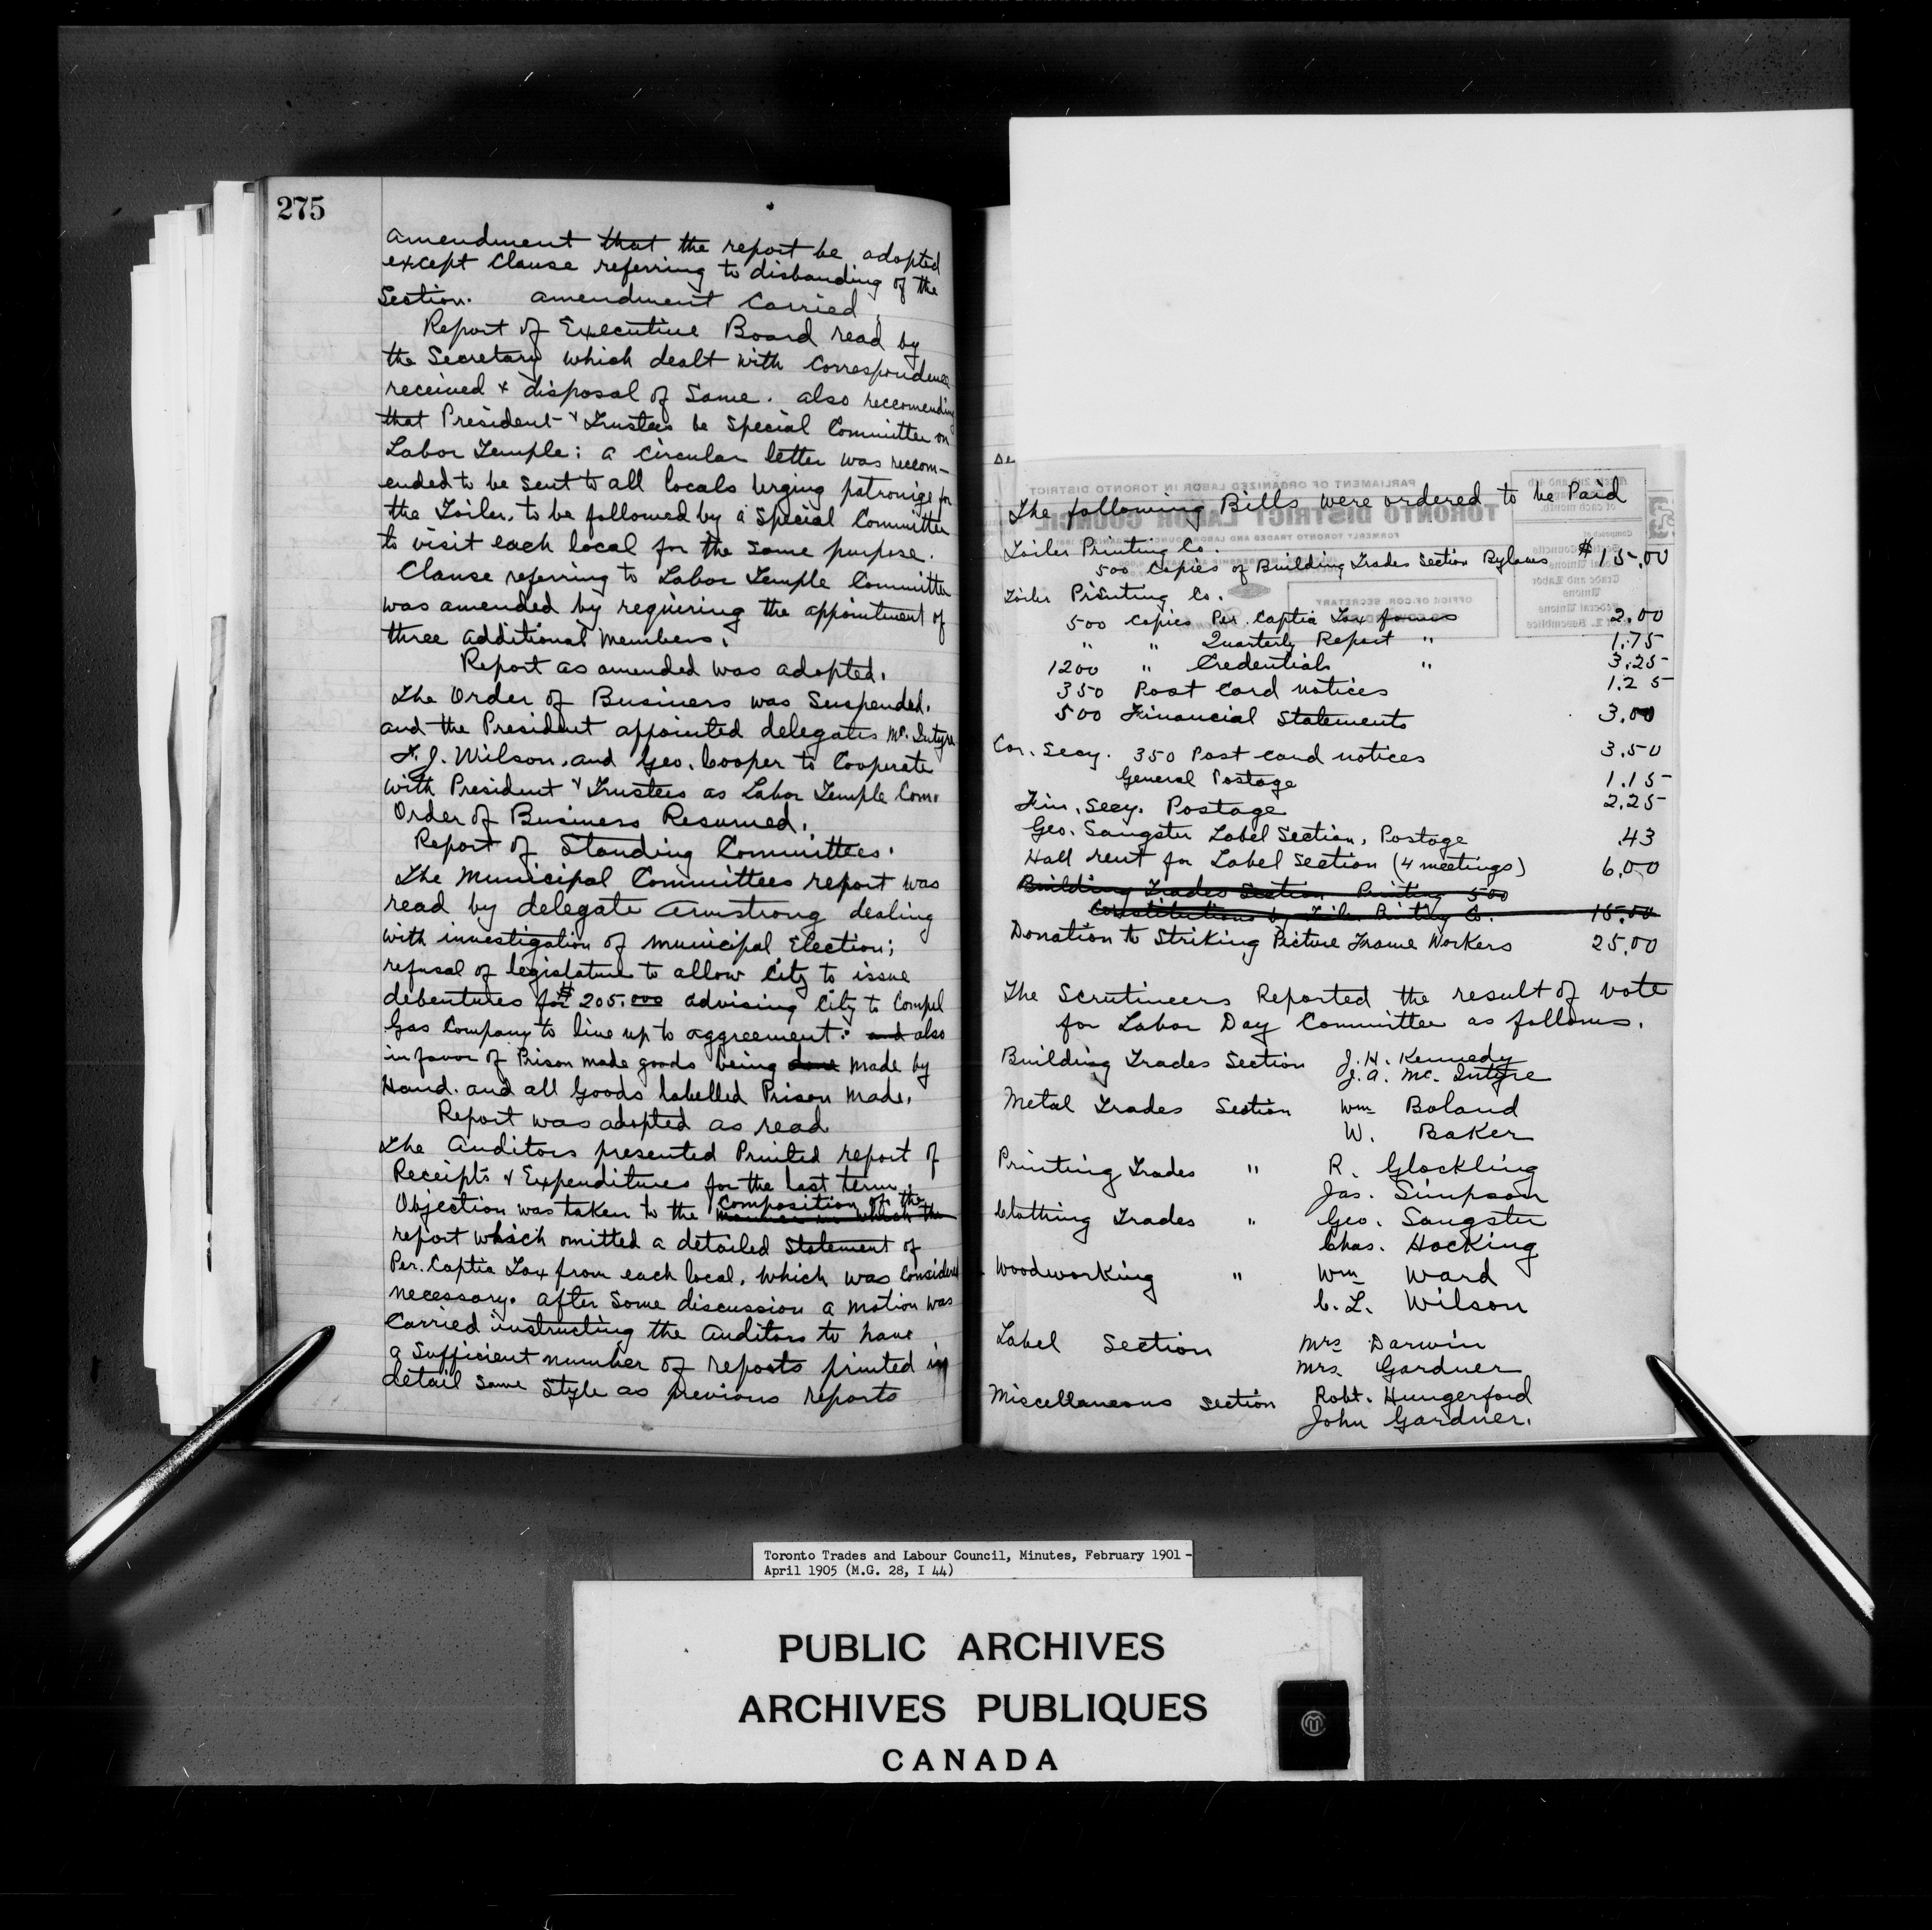 275
amendment that the report be adopted
except Clause referring to disbanding of the
Section. amendment Carried.
Report of Executive Board read by
the Secretary which dealt with Correspondence
received & disposal of Same. also reccomending
that President & Trustees be Special Committee on
Labor Temple: a Circular letter was reccom-
ended to be Sent to all locals Urging patronige for
the Toiler, to be followed by a Special Committee
to visit each local for the same purpose.
Clause referring to Labor Temple Committee
was amended by requiring the appointment of
three additional members.
Report as amended was adopted.
The Order of Business was Suspended.
and the President appointed delegates Mc. Intyre
F. J. Wilson, and Geo. Cooper to Cooperate
with President & Trustees as Labor Temple Com.
Order of Business Resumed.
Report of Standing Committees.
The Municipal Committees report was
read by delegate Armstrong dealing
with investigation of municipal Election;
refusal of legislature to allow City to issue
debentures for $205.000 advising City to Compel
Gas Company to live up to aggreement: and also
in favor of Prison made goods being done made by
Hand. and all Goods labelled Prison Made.
Report was adopted as read
The Auditors presented Printed report of
Receipts & Expenditures for the last term.
Composition of the
Objection was taken to the manner in which the
report which omitted a detailed Statement of
Per. Captia Tax from each local, which was Considered
necessary. after Some discussion a motion was
Carried instructing the Auditors to have
a Sufficient number of reports printed in
detail same Style as previous reports
PARLIAMENT OF ORGANIZED LABOR IN TORONTO DISTRICT
TORONTO DISTRICT LABOR COUNCIL
FORMERLY TORONTO TRADES AND LABOR COUNCIL
OFFICE OF COR. SECRETARY
The following Bills were ordered to be Paid
Toiler Printing Co.
500 Copies of Building Trades Section Bylaws $15.00
Toiler Printing Co.
500 Copies Per. Captia Tax forms 2.00
" " Quarterly Report " 1.75
1200 " Credentials " 3.25
350 Post Card notices 1.25
500 Financial Statements 3.00
Cor. Secy. 350 Post card notices 3.50
General Postage 1.15
Fin. Secy. Postage 2.25
Geo. Sangster Label Section, Postage .43
Hall rent for Label Section (4 meetings) 6.00
Building Trades Section Printing 500
Constitutions by Toiler Printing Co. 15.00
Donation to Striking Picture Frame Workers 25.00
The Scrutineers Reported the result of vote
for Labor Day Committee as follows.
Building Trades Section J. H. Kennedy
J. A. Mc. Intyre
Metal Trades Section Wm Boland
W. Baker
Printing Trades " R. Glockling
Jas. Simpson
Clothing Trades " Geo. Sangster
Chas. Hocking
Woodworking " Wm Ward
C. L. Wilson
Label Section Mrs Darwin
Mrs. Gardner
Miscellaneous Section Robt. Hungerford
John Gardner.
Toronto Trades and Labour Council, Minutes, February 1901 -
April 1905 (M.G. 28, I 44)
PUBLIC ARCHIVES
ARCHIVES PUBLIQUES
CANADA